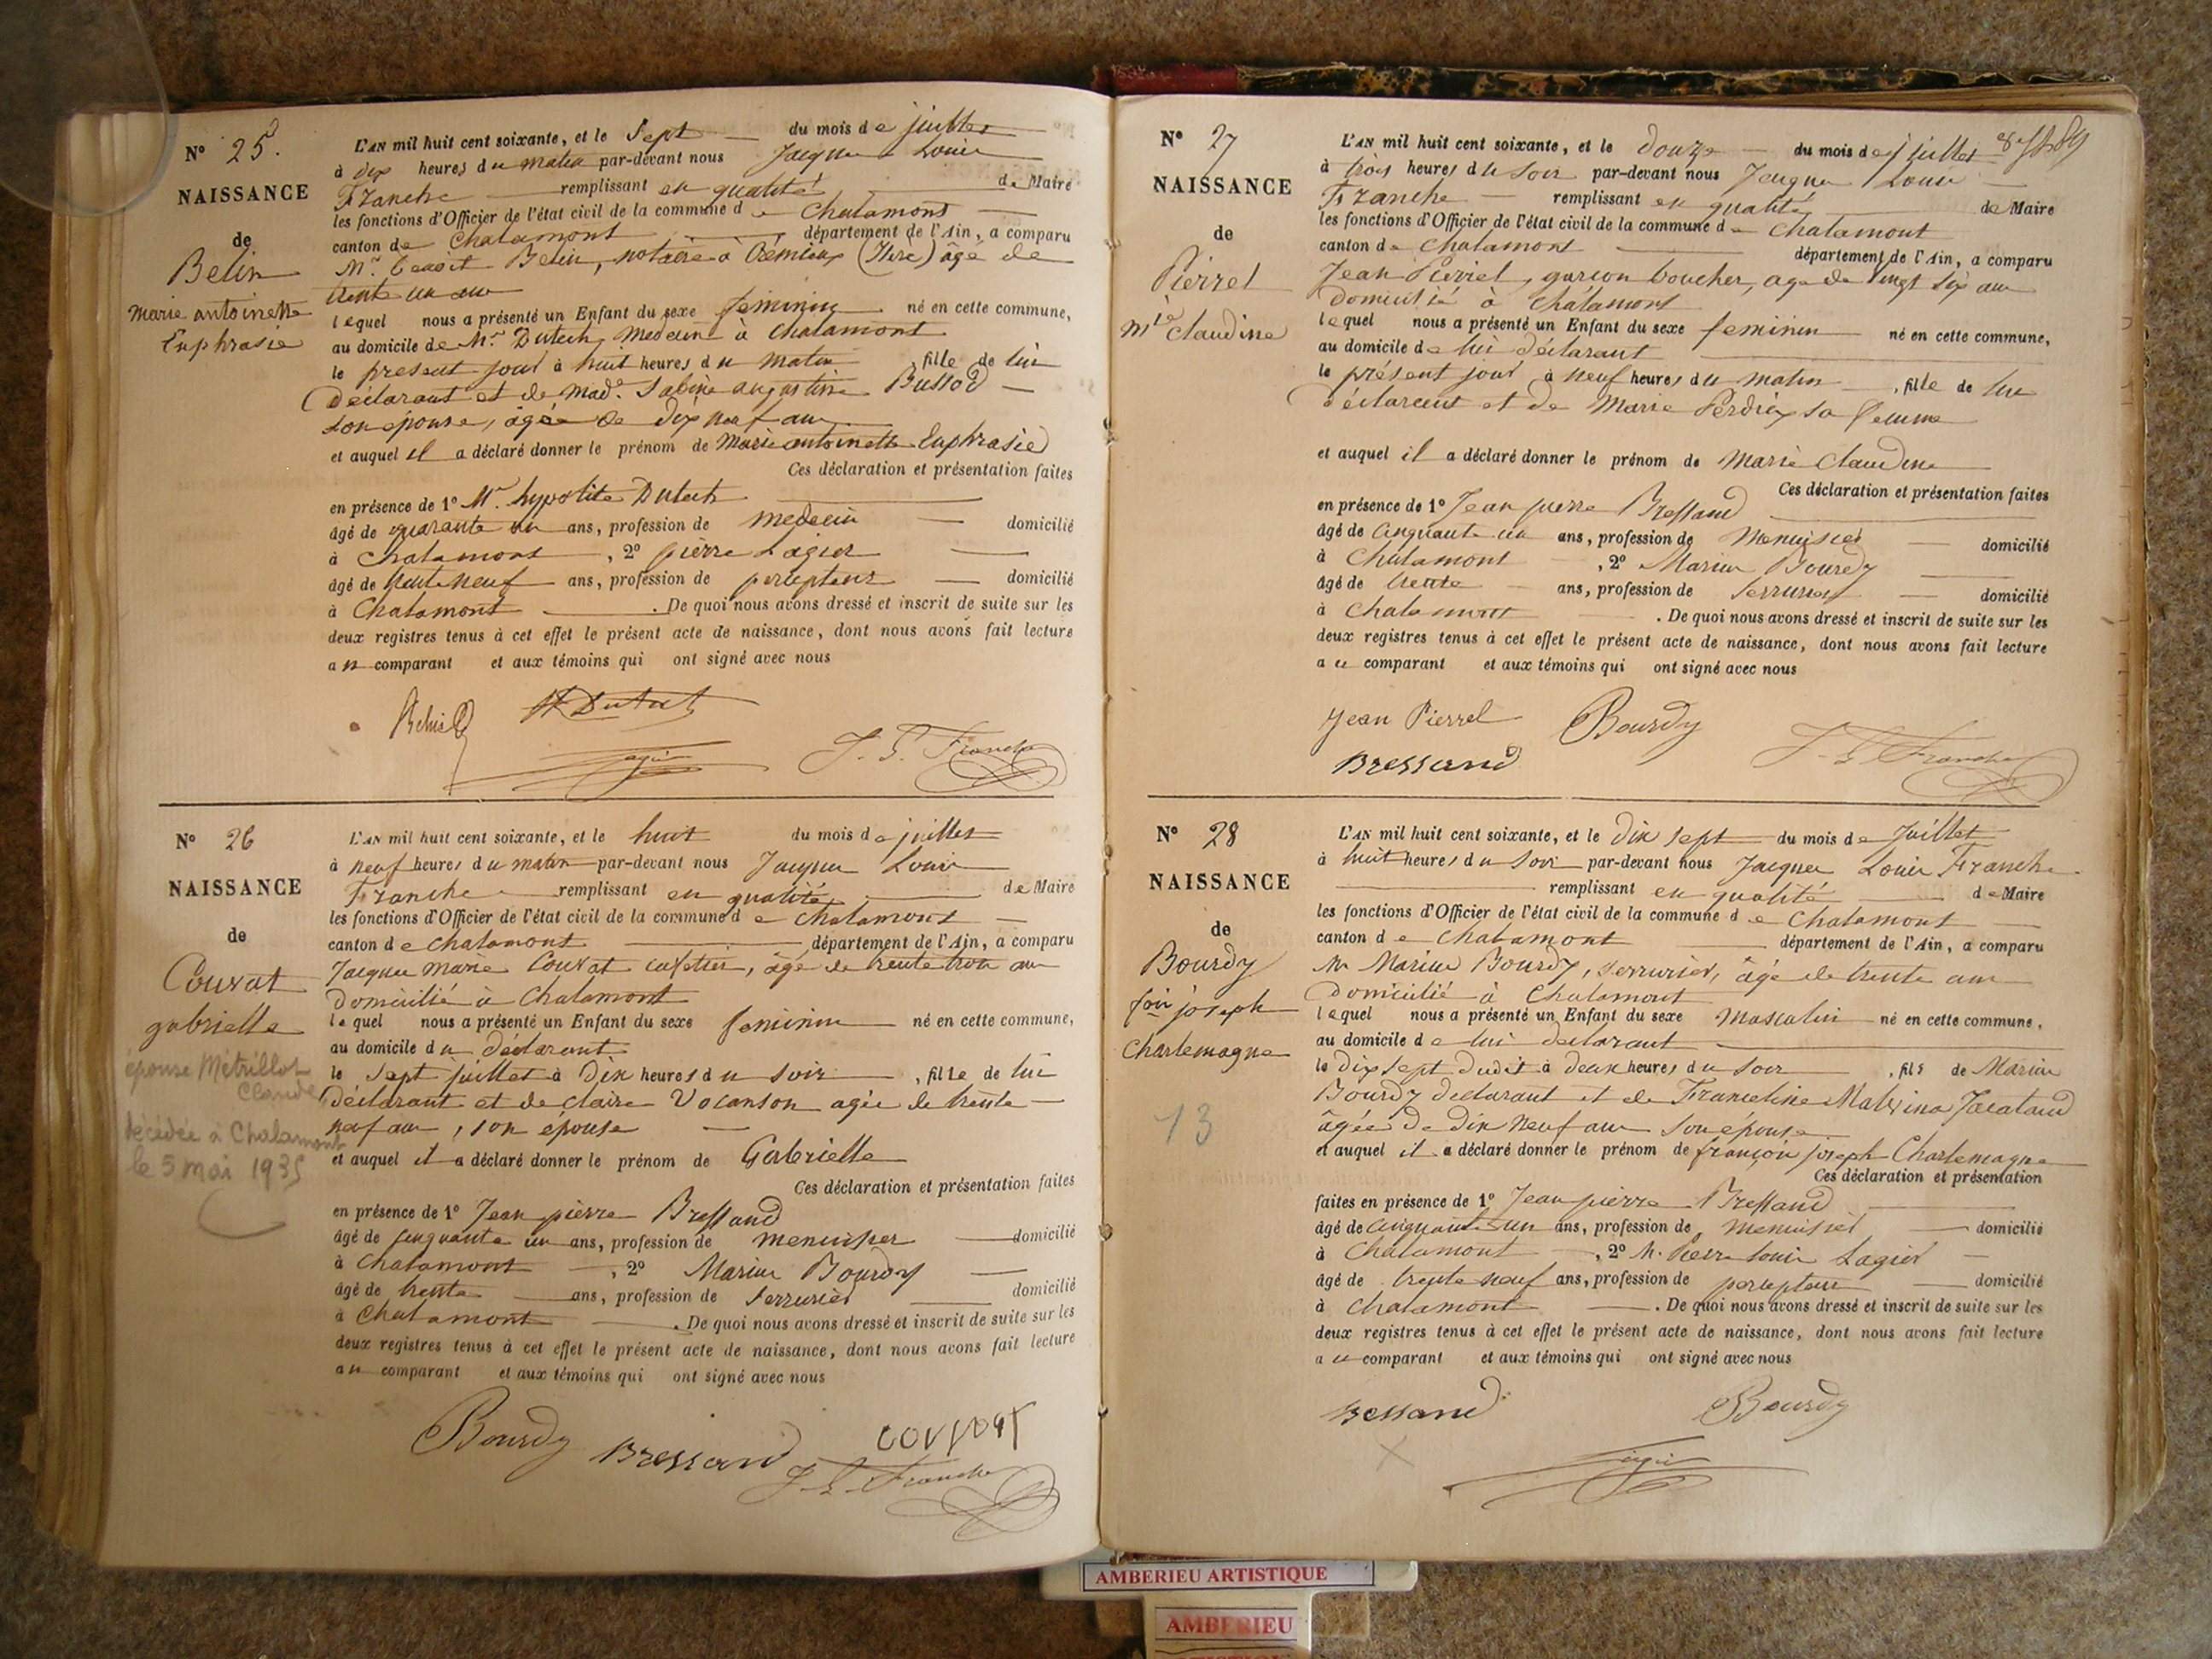 N° 25.
NAISSANCE
de
Belin
Marie antoinette
Euphrasie
L'AN mil huit cent soixante, et le Sept du mois de juillet
à dix heures du matin par-devant nous Jacques Louis
Franche remplissant en qualité de Maire
les fonctions d'Officier de l'état civil de la commune de Chalamont
canton de Chalamont département de l'Ain, a comparu
Mr. benoit Belin, notaire à Crémieux (Isère) âgé de
trente un ans
lequel nous a présenté un Enfant du sexe feminin né en cette commune,
au domicile de Mr. Dutech, Medecin à Chalamont
le présent jour à huit heures du matin, fille de lui
Déclarant et de Made. Sabine augustine Bussod
son épouse, âgée de dix neuf ans
et auquel il a déclaré donner le prénom de Marie antoinette Euphrasie
Ces déclaration et présentation faites
en présence de 1° Mr. hypolite Dutech
âgé de quarante un ans, profession de medecin domicilié
à Chalamont, 2° pierre Lagier
âgé de trente neuf ans, profession de percepteur domicilié
à Chalamont. De quoi nous avons dressé et inscrit de suite sur les
deux registres tenus à cet effet le présent acte de naissance, dont nous avons fait lecture
au comparant et aux témoins qui ont signé avec nous
Belin H Dutech
Lagier J. L. Franche
N° 26
NAISSANCE
de
Couvat
gabrielle
épouse Métrillot
Claude
décédée à Chalamont
le 5 mai 1935
L'AN mil huit cent soixante, et le huit du mois de juillet
à neuf heures du matin par-devant nous Jacques Louis
Franche remplissant en qualité de Maire
les fonctions d'Officier de l'état civil de la commune de Chalamont
canton de Chalamont département de l'Ain, a comparu
Jacques Marie Couvat cafetier, âgé de trente trois ans
Domicilié à Chalamont
lequel nous a présenté un Enfant du sexe feminin né en cette commune,
au domicile du Déclarant
le sept juillet à Dix heures du soir, fille de lui
Déclarant et de Claire Vocanson agée de trente
neuf ans, son épouse
et auquel il a déclaré donner le prénom de Gabrielle
Ces déclaration et présentation faites
en présence de 1° Jean pierre Bressand
âgé de cinquante un ans, profession de menuisier domicilié
à Chalamont, 2° Marius Bourdy
âgé de trente ans, profession de serrurier domicilié
à Chalamont. De quoi nous avons dressé et inscrit de suite sur les
deux registres tenus à cet effet le présent acte de naissance, dont nous avons fait lecture
au comparant et aux témoins qui ont signé avec nous
Bourdy Bressand couvat
J. L. Franche
N° 27
NAISSANCE
de
Pierrel
Mie Claudine
L'AN mil huit cent soixante, et le douze du mois de juillet
à trois heures du soir par-devant nous Jacques Louis
Franche remplissant en qualité de Maire
les fonctions d'Officier de l'état civil de la commune de Chalamont
canton de Chalamont département de l'Ain, a comparu
Jean Pierrel, garcon boucher, agé de vingt six ans
Domicilié à Chalamont
lequel nous a présenté un Enfant du sexe feminin né en cette commune,
au domicile de lui déclarant
le présent jour à neuf heures du matin, fille de lui
déclarant et de Marie Perdrix sa femme
et auquel il a déclaré donner le prénom de Marie Claudine
Ces déclaration et présentation faites
en présence de 1° Jean pierre Bressand
âgé de cinquante un ans, profession de Menuisier domicilié
à Chalamont, 2° Marius Bourdy
âgé de trente ans, profession de serrurier domicilié
à Chalamont. De quoi nous avons dressé et inscrit de suite sur les
deux registres tenus à cet effet le présent acte de naissance, dont nous avons fait lecture
au comparant et aux témoins qui ont signé avec nous
Jean Pierrel Bourdy
Bressand J. L. Franche
N° 28
NAISSANCE
de
Bourdy
fois joseph
Charlemagne
13
L'AN mil huit cent soixante, et le dix sept du mois de Juillet
à huit heures du soir par-devant nous Jacques Louis Franche
remplissant en qualité de Maire
les fonctions d'Officier de l'état civil de la commune de Chalamont
canton de Chalamont département de l'Ain, a comparu
Mr Marius Bourdy, serrurier, âgé de trente ans
Domicilié à Chalamont
lequel nous a présenté un Enfant du sexe Masculin né en cette commune,
au domicile de lui déclarant
le dix sept dudit à deux heures du soir, fils de Marius
Bourdy déclarant et de Franceline Malvina Jacataud
âgée de dix neuf ans son épouse
et auquel il a déclaré donner le prénom de françois joseph Charlemagne
Ces déclaration et présentation
faites en présence de 1° Jean pierre Bressand
âgé de cinquante un ans, profession de menuisier domicilié
à Chalamont, 2° M. Pierre Louis Lagier
âgé de trente neuf ans, profession de percepteur domicilié
à Chalamont. De quoi nous avons dressé et inscrit de suite sur les
deux registres tenus à cet effet le présent acte de naissance, dont nous avons fait lecture
au comparant et aux témoins qui ont signé avec nous
Bressand Bourdy
Lagier
AMBERIEU ARTISTIQUE
AMBERIEU